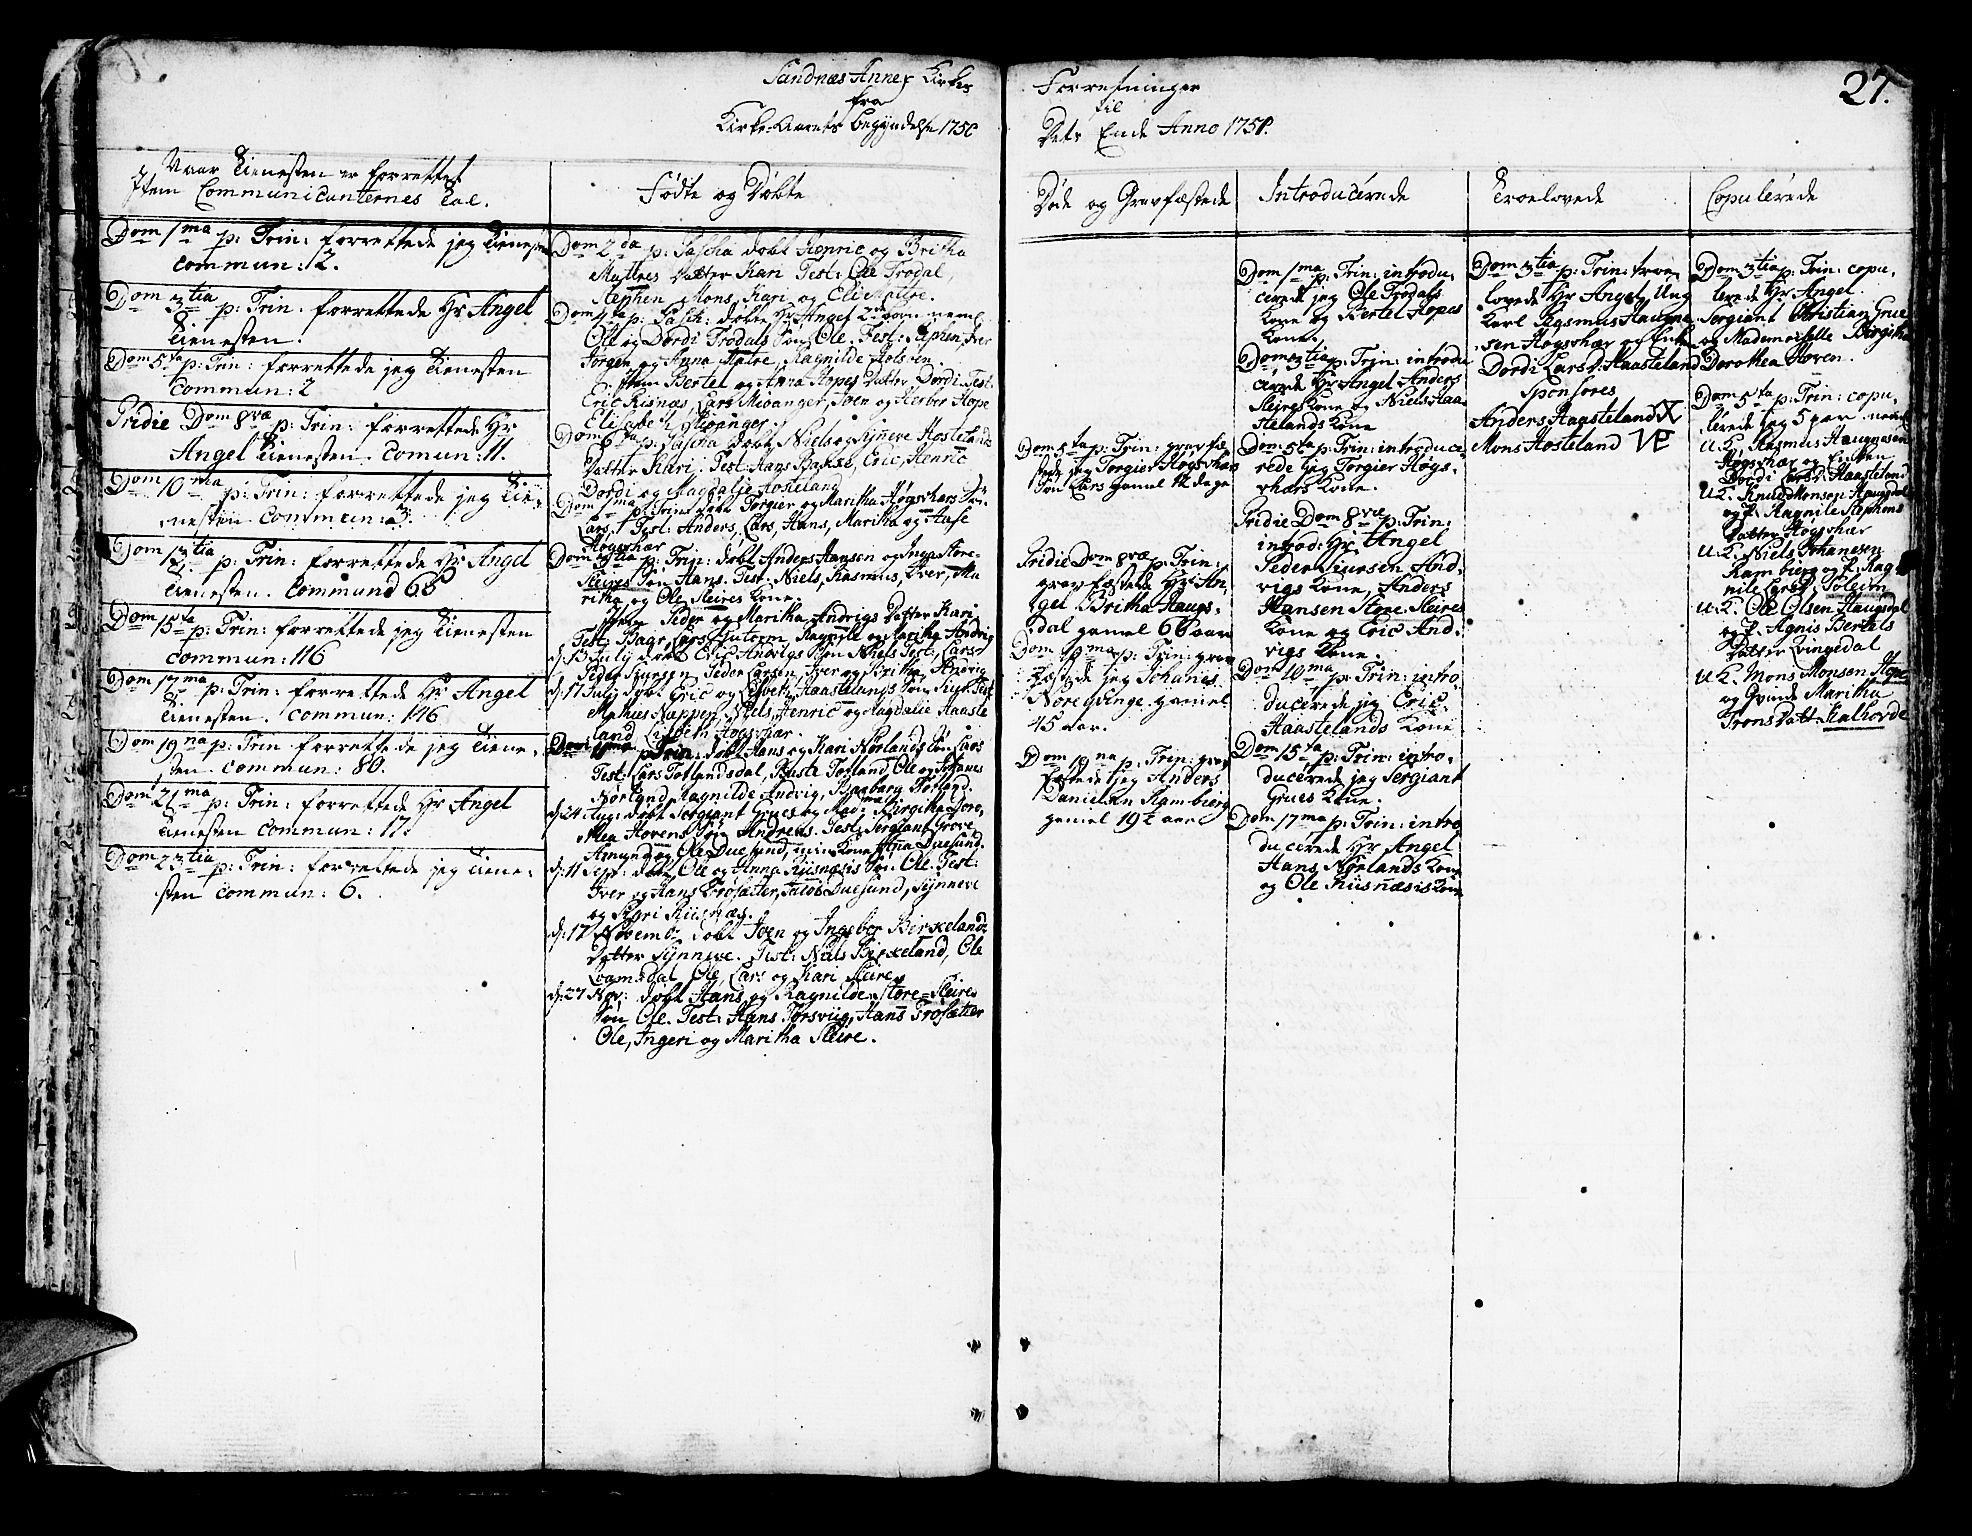 27.
Sandnæs Annex Kirkes
fra
Kirke-Aarets begyndelse 1750
Forretninger
til
Dets Ende Anno 1751.
Naar Tienesten er forrettet
Item Communicanternes Tal.
Dom 1ma p: Trin: forrettede jeg Tienesten
commun: 12.
Dom 3tia p: Trin: forrettede Hr Angel
Tienesten.
Dom 5ta p: Trin: forrettede jeg Tienesten
commun: 2
Pridie Dom 8væ p: Trin: forrettede Hr
Angel Tienesten. Comun: 11.
Dom 10ma p: Trin: forrettede jeg Tie-
nesten commun: 3.
Dom 13tia p: Trin: forrettede Hr Angel
Tienesten. Commund 65
Dom 15ta p: Trin: forrettede jeg Tienesten
commun: 116
Dom 17ma p: Trin: forrettede Hr Angel
Tienesten. commun: 146
Dom 19na p: Trin forrettede jeg Tiene-
sten commun: 80.
Dom 21ma p: Trin: forrettede Hr Angel
Tienesten commun: 17.
Dom 23tia p: Trin: forrettede jeg Tiene-
sten commun: 6.
Fødte og Døbte
Dom 2da p: Pascha døbt Henric og Britha
Matres Datter Kari Test: Ole Trodal,
Stephen, Mons, Kari og Eli Matre.
Dom 4ta p: Pasch: døbte Hr Angel 2de børn neml
Ole og Dordi Trodals Søn Ole. Test: Stephen, Iver
Jorgen og Anna Matre, Ragnilde
Item Bertel og Anna Hopes Datter Dordi. Test:
Eric Risnæs, Lars Mivanger, Joen og Herbor Hope
Elisabeth
Dom 6ta p: Pascha døbt Niels og Syneve Hostelands
Datter Kari. Test: Hans Eric, Henric
Dordi og Magdalie Hosteland
Dom 1ma p: Trin: døbt Torgier og Maritha Høgsvhars Søn
Lars. Test: Anders, Lars, Hans, Maritha og Aase
Høgsvhar
Dom 3tia p: Trin: døbt Anders Hansen og Inga Store-
Sleires Søn Hans. Test: Niels, Rasmus, Iver, Ma
ritha og Ole Sleires Kone.
Item Peder og Maritha Andvigs Datter Kari.
Test: Lars Ragnilde og Maritha Andvig
d: 13 July døbt Eric Andvigs Søn Niels Test: Lars,
Peder Siursen, Peder Larsen, Iver og Britha Andvig
d: 17 July døbt Eric og Lisbeth Haastelands Søn Test:
Mathies Nappen, Niels, Henric og Magdalie Haaste
land, Lisbeth Høgsvhar.
p: Trin: døbt Hans og Kari Nørlands Søn Lars
Test: Lars Totlandsdal, Totland, Ole og Johanes
Nørland, Ragnilde Andvig, Totland.
d: 24 Aug: døbt Sergiant Grues og Mad: Birgitha Doro-
thea Hovens Søn Andreas. Test: Sergiant Grove
Amund og Ole Duesund, min Kone Duesund.
d: 11 Sept: døbt Ole og Anna Riisnæsis Søn Ole. Test:
Iver og Hans Trosætter, Jacob Duesund, Synneve
og Kari Riisnæs.
d: 17 Novemb: døbt Joen og Ingebor Birkelands
Datter Synneve. Test: Niels Birkeland, Ole
Qvamsdal, Ole, Lars og Kari Sleire
d: 27 Nov: døbt Hans og Ragnilde Store-Sleires
Søn Ole. Test: Hans Torsviig, Hans Trosætter
Ole, Ingeri og Maritha Sleire.
Døde og Gravfæstede
Dom 5ta p: Trin: gravfæ-
stede jeg Torgier Høgsvhars
Søn Lars gamel 12 dage
Pridie Dom 8væ p: Trin:
gravfæstede Hr An-
gel Britha Haugs-
dal gamel 66 aar
Dom 10ma p: Trin: grav
fæstede jeg Johanes
Nøreqvinge gamel
45 aar.
Dom 19na p: Trin: grav
fæstede jeg Anders
Danielsen Ramsbierg
gamel 19½ aar
Introducérede
Dom 1ma p: Trin: introdu-
cerede jeg Ole Trodals
Kone og Bertel Hopes
Kone.
Dom 3tia p: Trin: introdu
cerede Hr Angel Anders
Sleires Kone og Niels Haa-
stelands Kone
Dom 5ta p: Trin: introduce-
rede jeg Torgier Høgs-
vhars Kone.
Pridie Dom 8væ p: Trin:
introd: Hr Angel
Peder Siursen And-
vigs Kone, Anders
Hansen Store Sleires
Kone og Eric And-
vigs Kone.
Dom 10ma p: Trin: intro-
ducerede jeg Eric
Haastelands Kone
Dom 15ta p: Trin: intro-
ducerede jeg Sergiant
Grues Kone.
Dom 17ma p: Trin: intro
ducerede Hr Angel
Hans Nørlands Kone
og Ole Riisnæsis Kone
Troelovede
Dom 3tia p: Trin: troe-
lovede Hr Angel Ung
Karl Rasmus Haugne
sen Høgsvhar og Enken
Dordi Lars D: Haasteland
Sponsores
Anders Haasteland
Mons Hosteland
Copulérede
Dom 3tia p: Trin: copu-
lerede Hr Angel
Sergiant Christian Grue
og Mademoiselle Birgitha
Dorothea Hoven.
Dom 5ta p: Trin: copu-
lerede jeg 5 par neml
U.K. Rasmus Haugnesen
Høgsvhar og Enken
Dordi Larsd: Haasteland
U.K. Knud Monsen Haugsdal
og P. Ragnile Stephens
Datter Høgsvhar
U.K. Niels Johanesen
Ramsbierg og P. Rag-
nile Larsd: Soleim
U.K. Ole Olsen Haugsdal
og P. Agnis Bertels
Datter Qvingedal
U.K. Mons Monsen Hope
og Qvinde Maritha
Trons Datt: Kalhovde